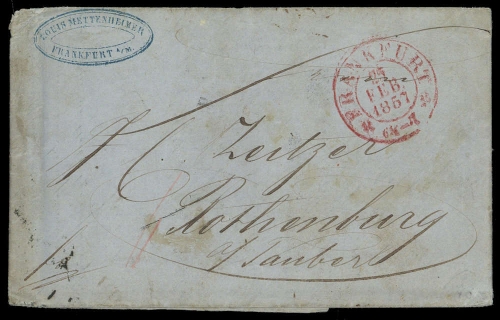 LOUIS METTENHEIMER
FRANKFURT a/M.
FRANKFURT
25
FEB.
1851
Zeitzer
Rothenburg
a/Tauber